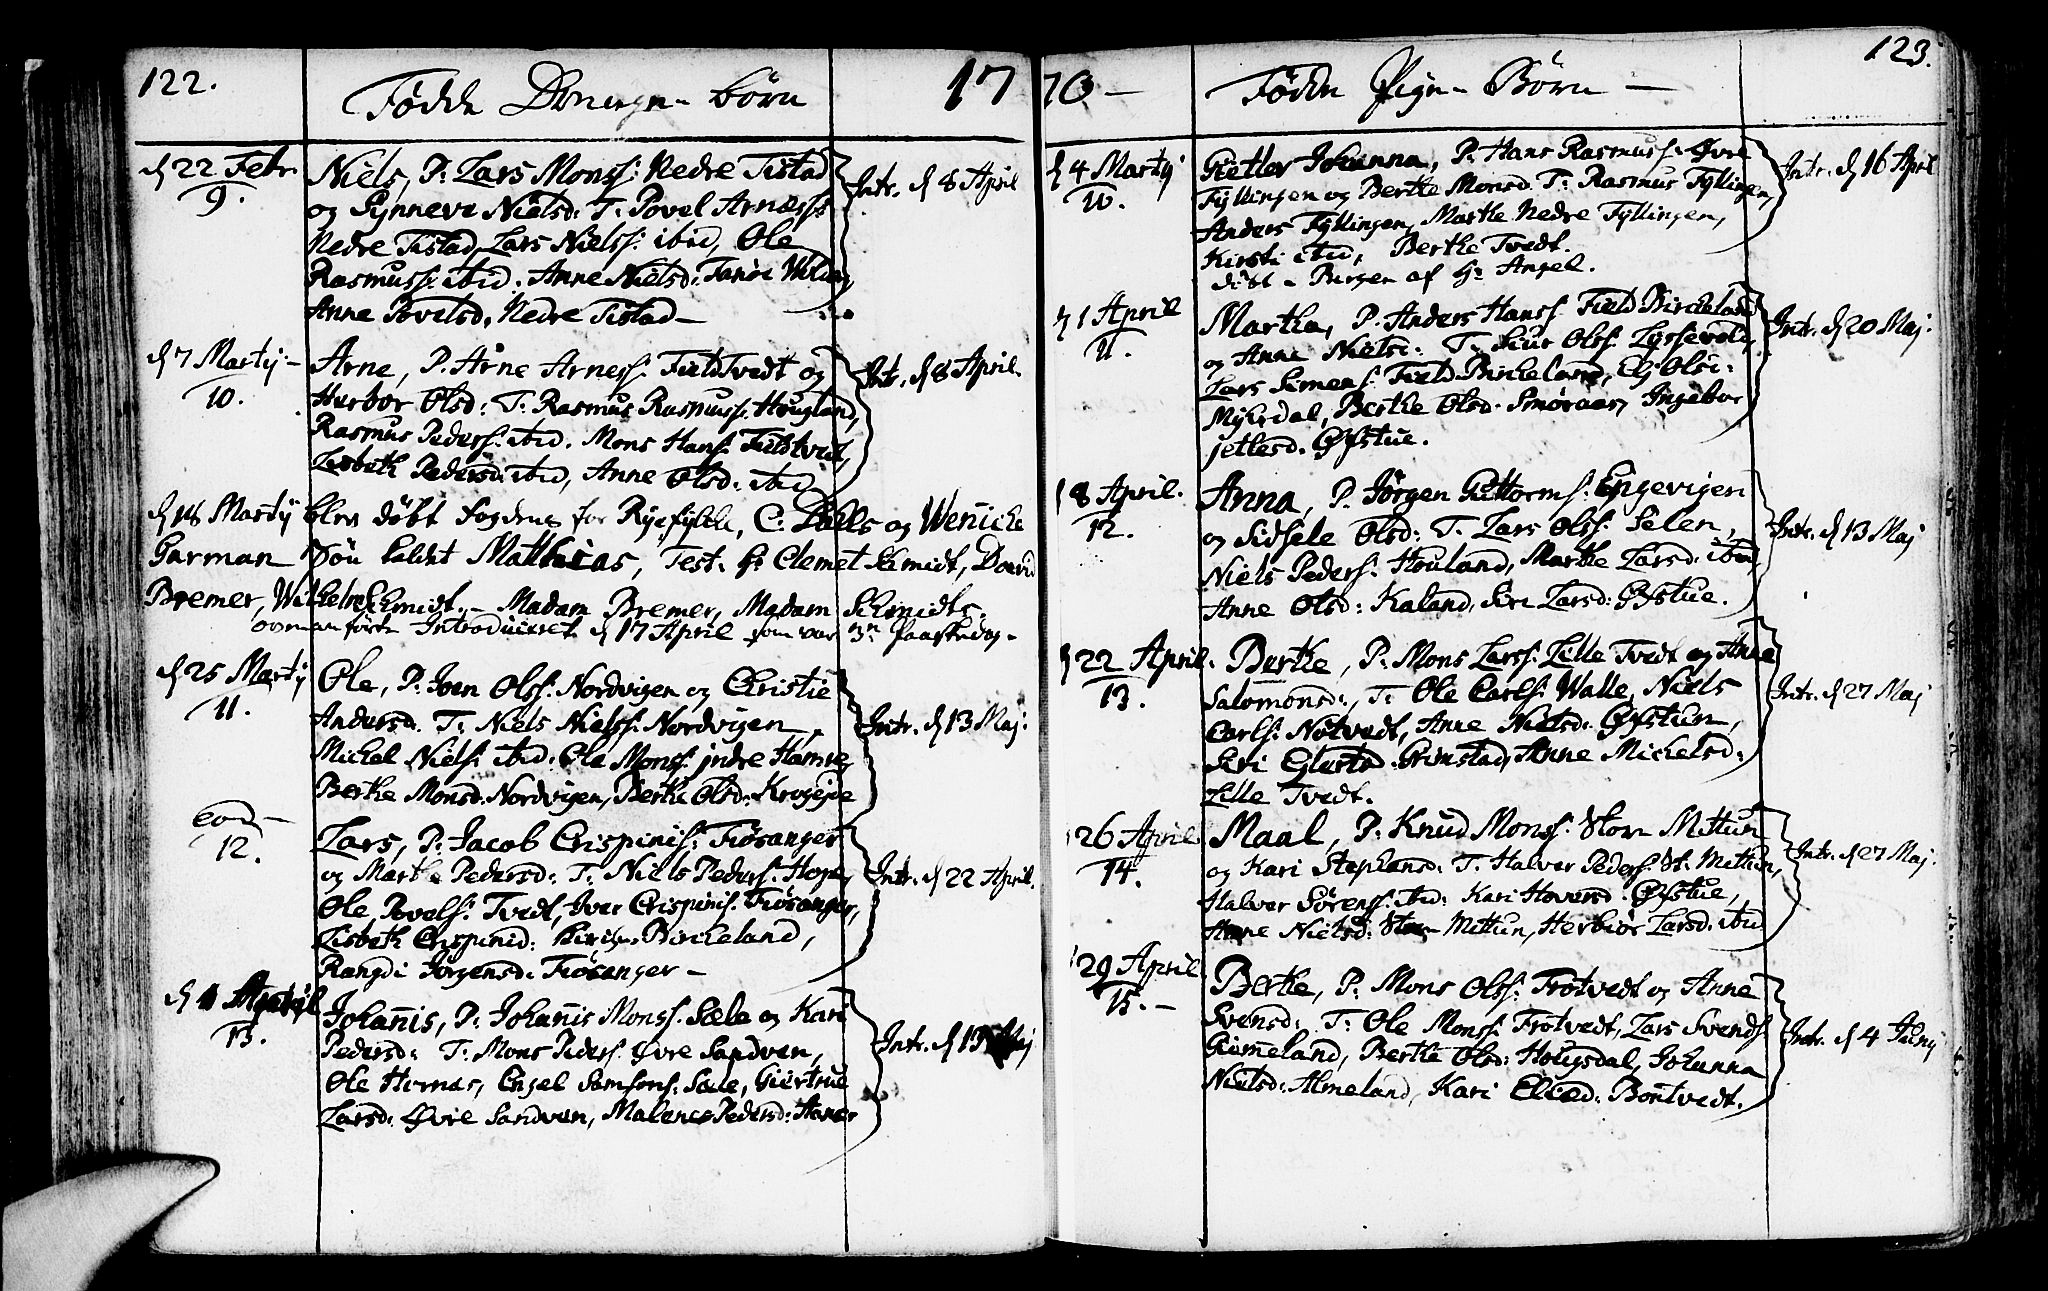 122.
Fødde Drenge-børn
17
d 22 Febr.
9.
Niels, P: Lars Monss: Nedre Tistad
og Synneve Nielsd: T: Povel Arness:
Nedre Tistad, Lars Nielss: ibid, Ole
Rasmuss: ibid. Anne Nielsd: Fanøe
Anne Povelsd. Nedre Tistad -
Intr. d 8 April
d 7 Martij -
10.
Arne, P. Arne Arness: FieldTvedt og
Herbor Olsd: T: Rasmus Rasmuss. Hougland,
Rasmus Peders: ibid. Mons Hans: Fieldtvedt,
Lisbeth Pedersd: ibid, Anne Olsd: ibid
Intr. d 8 April.
d 18 Martij blev døbt fogdens for Ryefylke, C: Dalls og Wenicke
Garman Søn kaldet Matthias, Test: Hr Clemet Schmidt, David
Bremer, Wilhelm Schmidt. - Madam Bremer, Madam Schmidts.
Introduceret d 17 April som var 3die Paaskedag -
d 25 Martij
11.
Ole, P: Joen Olss: Nordvigen og Christie
Andersd. T: Niels Nielss: Nordvigen,
Michel Niels: ibid. Ole Monss: jndre Hamre,
Berthe Monsd: Nordvigen, Berthe Olsd: Krogeide
Intr. d 13 Maj:
eod -
12.
Lars, P: Jacob Crispinis: Fiøsanger
og Marthe Pedersd: T: Niels Peders: Hope,
Ole Povels: Tvedt, Iver Crispinis: Fiøsanger,
Lisbeth Crispinid: Birkeland,
Rangdi Jørgensd: Fiøsanger -
Intr. d 22 April.
d 1 April
13.
Johannis, P: Johannis Monss: Sæle og Kari
Pedersd: T: Mons Peders: Øvre Sandven,
Ole Hornæs, Engel Samsons: Sæle, Giertrue
Larsd: Øvre Sandven, Malene Pedersd: Haner
Intr. d 13 Maj
70 -
Fødde Pige-Børn -
123.
d 4 Martij
10.
Johanna, P: Hans Rasmuss: Øvre
Fyllingen og Berthe Monsd. T: Rasmus Fyllingen,
Anders Fyllingen, Marthe Nedre Fyllingen,
Kirsti ibid, Berthe Tvedt.
døbt i Bergen af Hr Angel.
Intr. d 16 April
d 1 April
11.
Martha, P: Anders Hans: Field Birckeland
og Anne Nielsd: T: Siur Olss: Lyssevold,
Lars Simens: Field Birckeland, Olsd:
Myhrdal, Berthe Olsd: Smøraas, Ingebor
jetlesd. Øvstue.
Intr. d 20 Maj.
18 April.
12.
Anna, P: Jørgen Guttorms: Engevigen
og Sidsele Olsd: T: Lars Olss: Silen,
Niels Peders: Houland, Marthe Larsd: ibid,
Anne Olsd: Kaland, Siri Larsd: Øvstue.
Intr. d 13 Maj
d 22 April.
13.
Berthe, P: Mons Larss: Lille Tvedt og Anne
Salomonsd:, T: Ole Carls: Walle, Niels
Carls: Nøtvedt, Anne Nielsd: Øvstun,
Siri Grimstad, Anne Michelsd:
Lille Tvedt.
Intr. d 27 Maj
26 April
14.
Maal, P: Knud Monss: Store Mittun
og Kari Stephensd: T: Halver Peders: St: Mittun,
Halver Sørens: ibid: Kari Haversd: Øvstue,
Anne Nielsd: Store Mittun, Herbiør Larsd: ibid
Intr. d 27 Maj.
29 April
15. -
Berthe, P: Mons Olss: Trotvedt og Anne
Svensd: T: Ole Monss: Trotvedt, Lars Svends:
Giømeland, Berthe Olsd: Hougsdal, Johanna
Nielsd: Almeland, Kari Elied: Bontvedt.
Intr. d 4 Junij